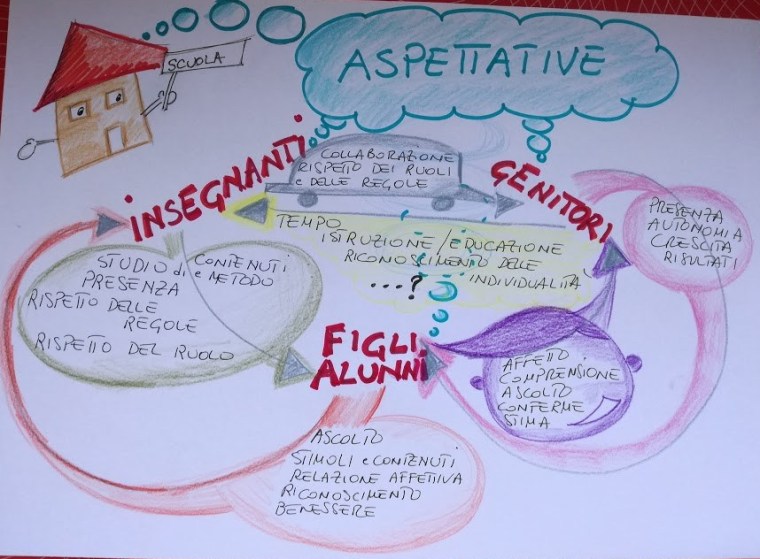 SCUOLA
ASPETTATIVE
INSEGNANTI
COLLABORAZIONE
RISPETTO DEI RUOLI
e DELLE REGOLE
GENITORI
PRESENZA
AUTONOMIA
CRESCITA
RISULTATI
TEMPO
ISTRUZIONE/EDUCAZIONE
RICONOSCIMENTO DELLE
INDIVIDUALITÀ
...?
STUDIO di CONTENUTI
e METODO
PRESENZA
RISPETTO DELLE
REGOLE
RISPETTO DEL RUOLO
FIGLI
ALUNNI
AFFETTO
COMPRENSIONE
ASCOLTO
CONFERME
STIMA
ASCOLTO
STIMOLI e CONTENUTI
RELAZIONE AFFETTIVA
RICONOSCIMENTO
BENESSERE